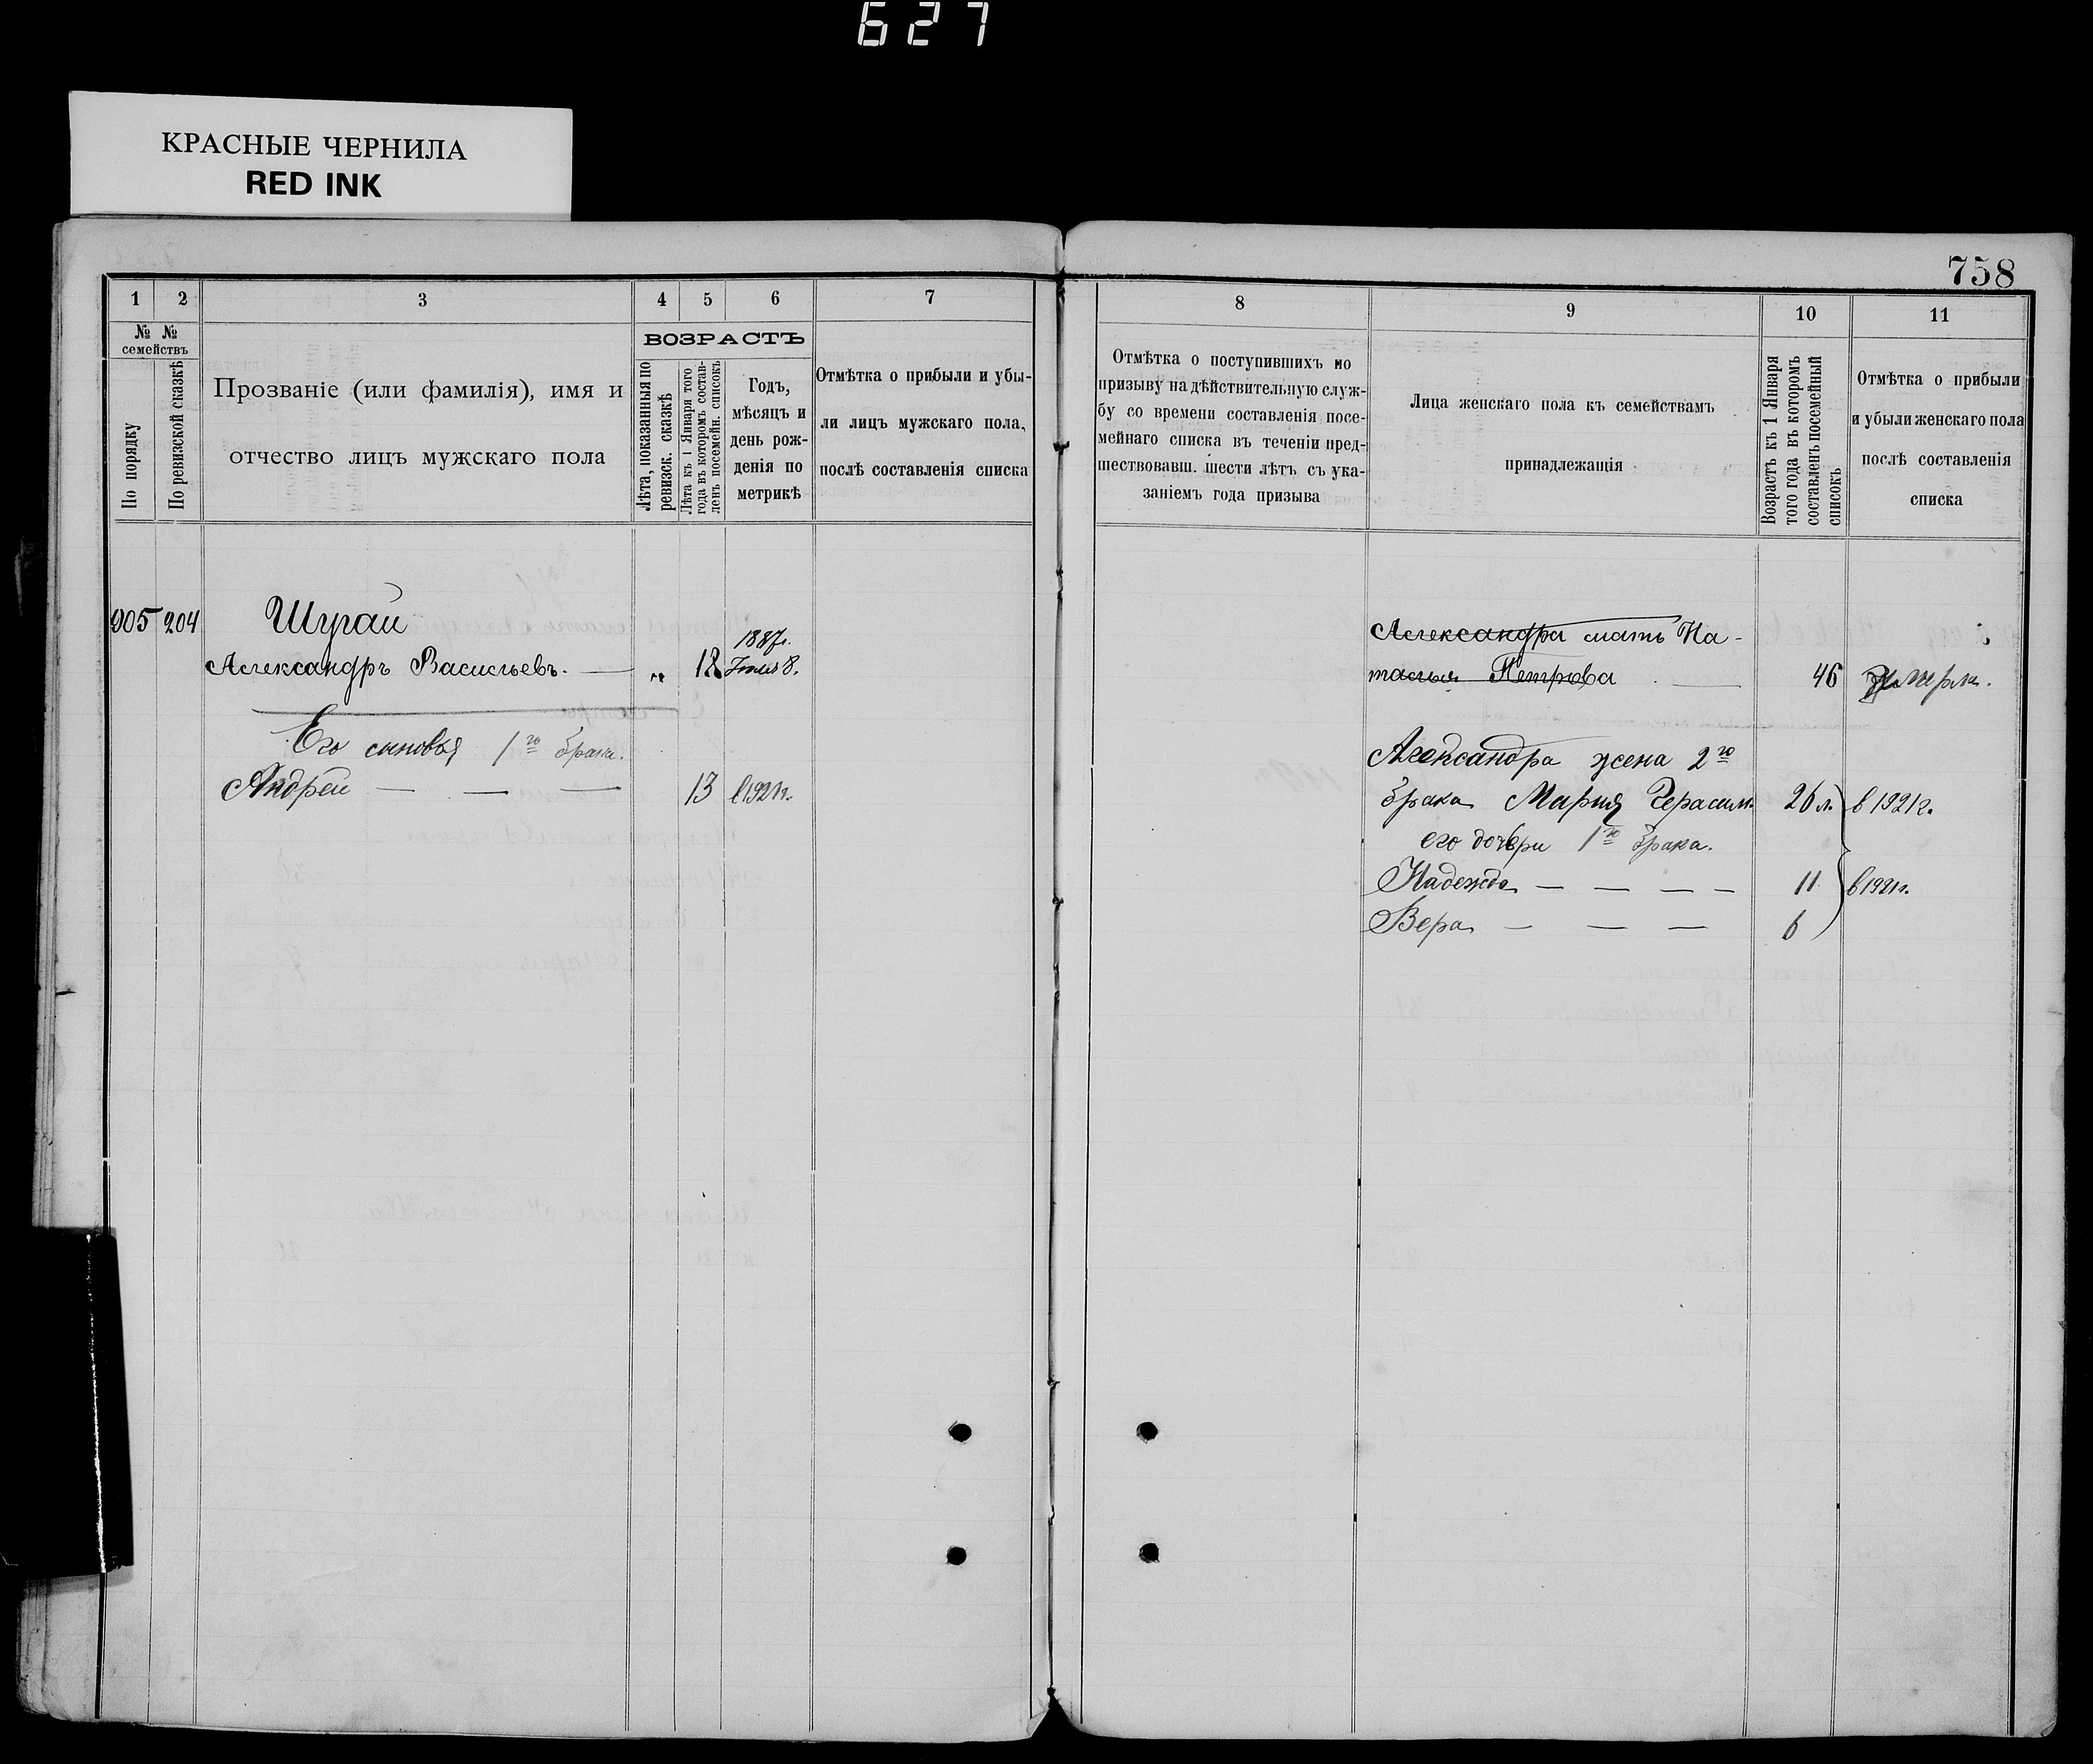 627
КРАСНЫЕ ЧЕРНИЛА
RED INK
758
1 2 3 4 5 6 7
№ № семействъ
По порядку
По ревизской сказкѣ
Прозваніе (или фамилія), имя и
отчество лицъ мужскаго пола
ВОЗРАСТЪ
Лѣта, показанныя по
ревизск. сказкѣ
Лѣта къ 1 Января того
года въ которомъ состав-
ленъ посемейн. списокъ
Годъ,
мѣсяцъ и
день рож-
денія по
метрикѣ
Отмѣтка о прибыли и убы-
ли лицъ мужскаго пола,
послѣ составленія списка
8 9 10 11
Отмѣтка о поступившихъ по
призыву на дѣйствительную служ-
бу со времени составленія посе-
мейнаго списка въ теченіи пред-
шествовавш. шести лѣтъ съ ука-
заніемъ года призыва
Лица женскаго пола къ семействамъ
принадлежащія
Возрастъ къ 1 Января
того года въ которомъ
составленъ посемейный
списокъ
Отмѣтка о прибыли
и убыли женскаго пола
послѣ составленія
списка
905 204 Шугай
1887г.
Александръ Васильевъ. — „ 18 8.
Его сыновья 1го брака.
Андрей — — — 13 в 1921г.
Александра мать На-
талья Петрова — 46
Александра жена 2го
брака Мария Герасим. 26 л. в 1921г.
его дочери 1го брака.
Надежда — — — — 11 в 1921г.
Вера — — — 6